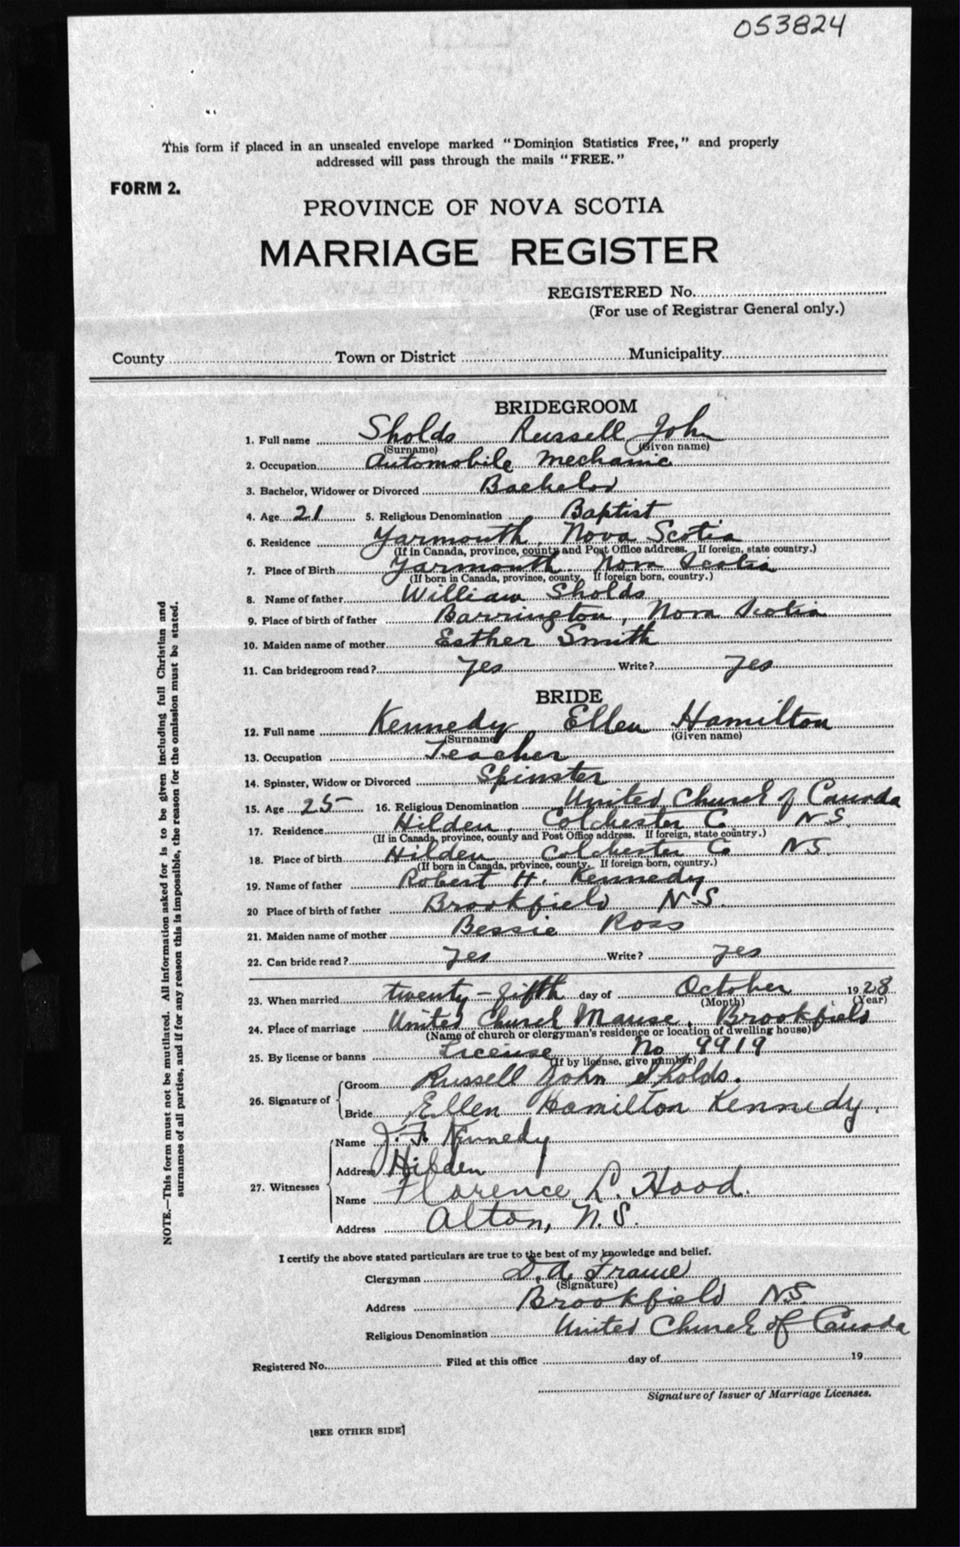 053824
This form if placed in an unsealed envelope marked "Dominion Statistics Free," and properly
addressed will pass through the mails "FREE."
FORM 2.
PROVINCE OF NOVA SCOTIA
MARRIAGE REGISTER
REGISTERED No.
(For use of Registrar General only.)
County Town or District Municipality
BRIDEGROOM
1. Full name Sholds Russell John
(Surname) (Given name)
2. Occupation Automobile Mechanic
3. Bachelor, Widower or Divorced Bachelor
4. Age 21 5. Religious Denomination Baptist
6. Residence Yarmouth, Nova Scotia
(If in Canada, province, county and Post Office address. If foreign, state country.)
7. Place of Birth Yarmouth. Nova Scotia
(If born in Canada, province, county. If foreign born, country.)
8. Name of father William Sholds
9. Place of birth of father Barrington, Nova Scotia
10. Maiden name of mother Esther Smith
11. Can bridegroom read? Yes Write? Yes
BRIDE
12. Full name Kennedy Ellen Hamilton
(Surname) (Given name)
13. Occupation Teacher
14. Spinster, Widow or Divorced Spinster
15. Age 25 16. Religious Denomination United Church of Canada
17. Residence Hilden, Colchester Co N.S.
(If in Canada, province, county and Post Office address. If foreign, state country.)
18. Place of birth Hilden Colchester Co NS
(If born in Canada, province, county. If foreign born, country.)
19. Name of father Robert H. Kennedy
20 Place of birth of father Brookfield N.S.
21. Maiden name of mother Bessie Ross
22. Can bride read? Yes Write? Yes
23. When married twenty-fifth day of October 1928
(Month) (Year)
24. Place of marriage United Church Manse, Brookfield
(Name of church or clergyman's residence or location of dwelling house)
25. By license or banns License No 9919
(If by license, give number)
26. Signature of Groom Russell John Sholds.
Bride Ellen Hamilton Kennedy.
27. Witnesses
Name J. F. Kennedy
Address Hilden
Name Florence L. Hood.
Address Alton, N.S.
I certify the above stated particulars are true to the best of my knowledge and belief.
Clergyman D. A. Frame
(Signature)
Address Brookfield N.S.
Religious Denomination United Church of Canada
Registered No. Filed at this office day of 19
Signature of Issuer of Marriage Licenses.
[SEE OTHER SIDE]
NOTE.—This form must not be mutilated. All information asked for is to be given including full Christian and
surnames of all parties, and if for any reason this is impossible, the reason for the omission must be stated.